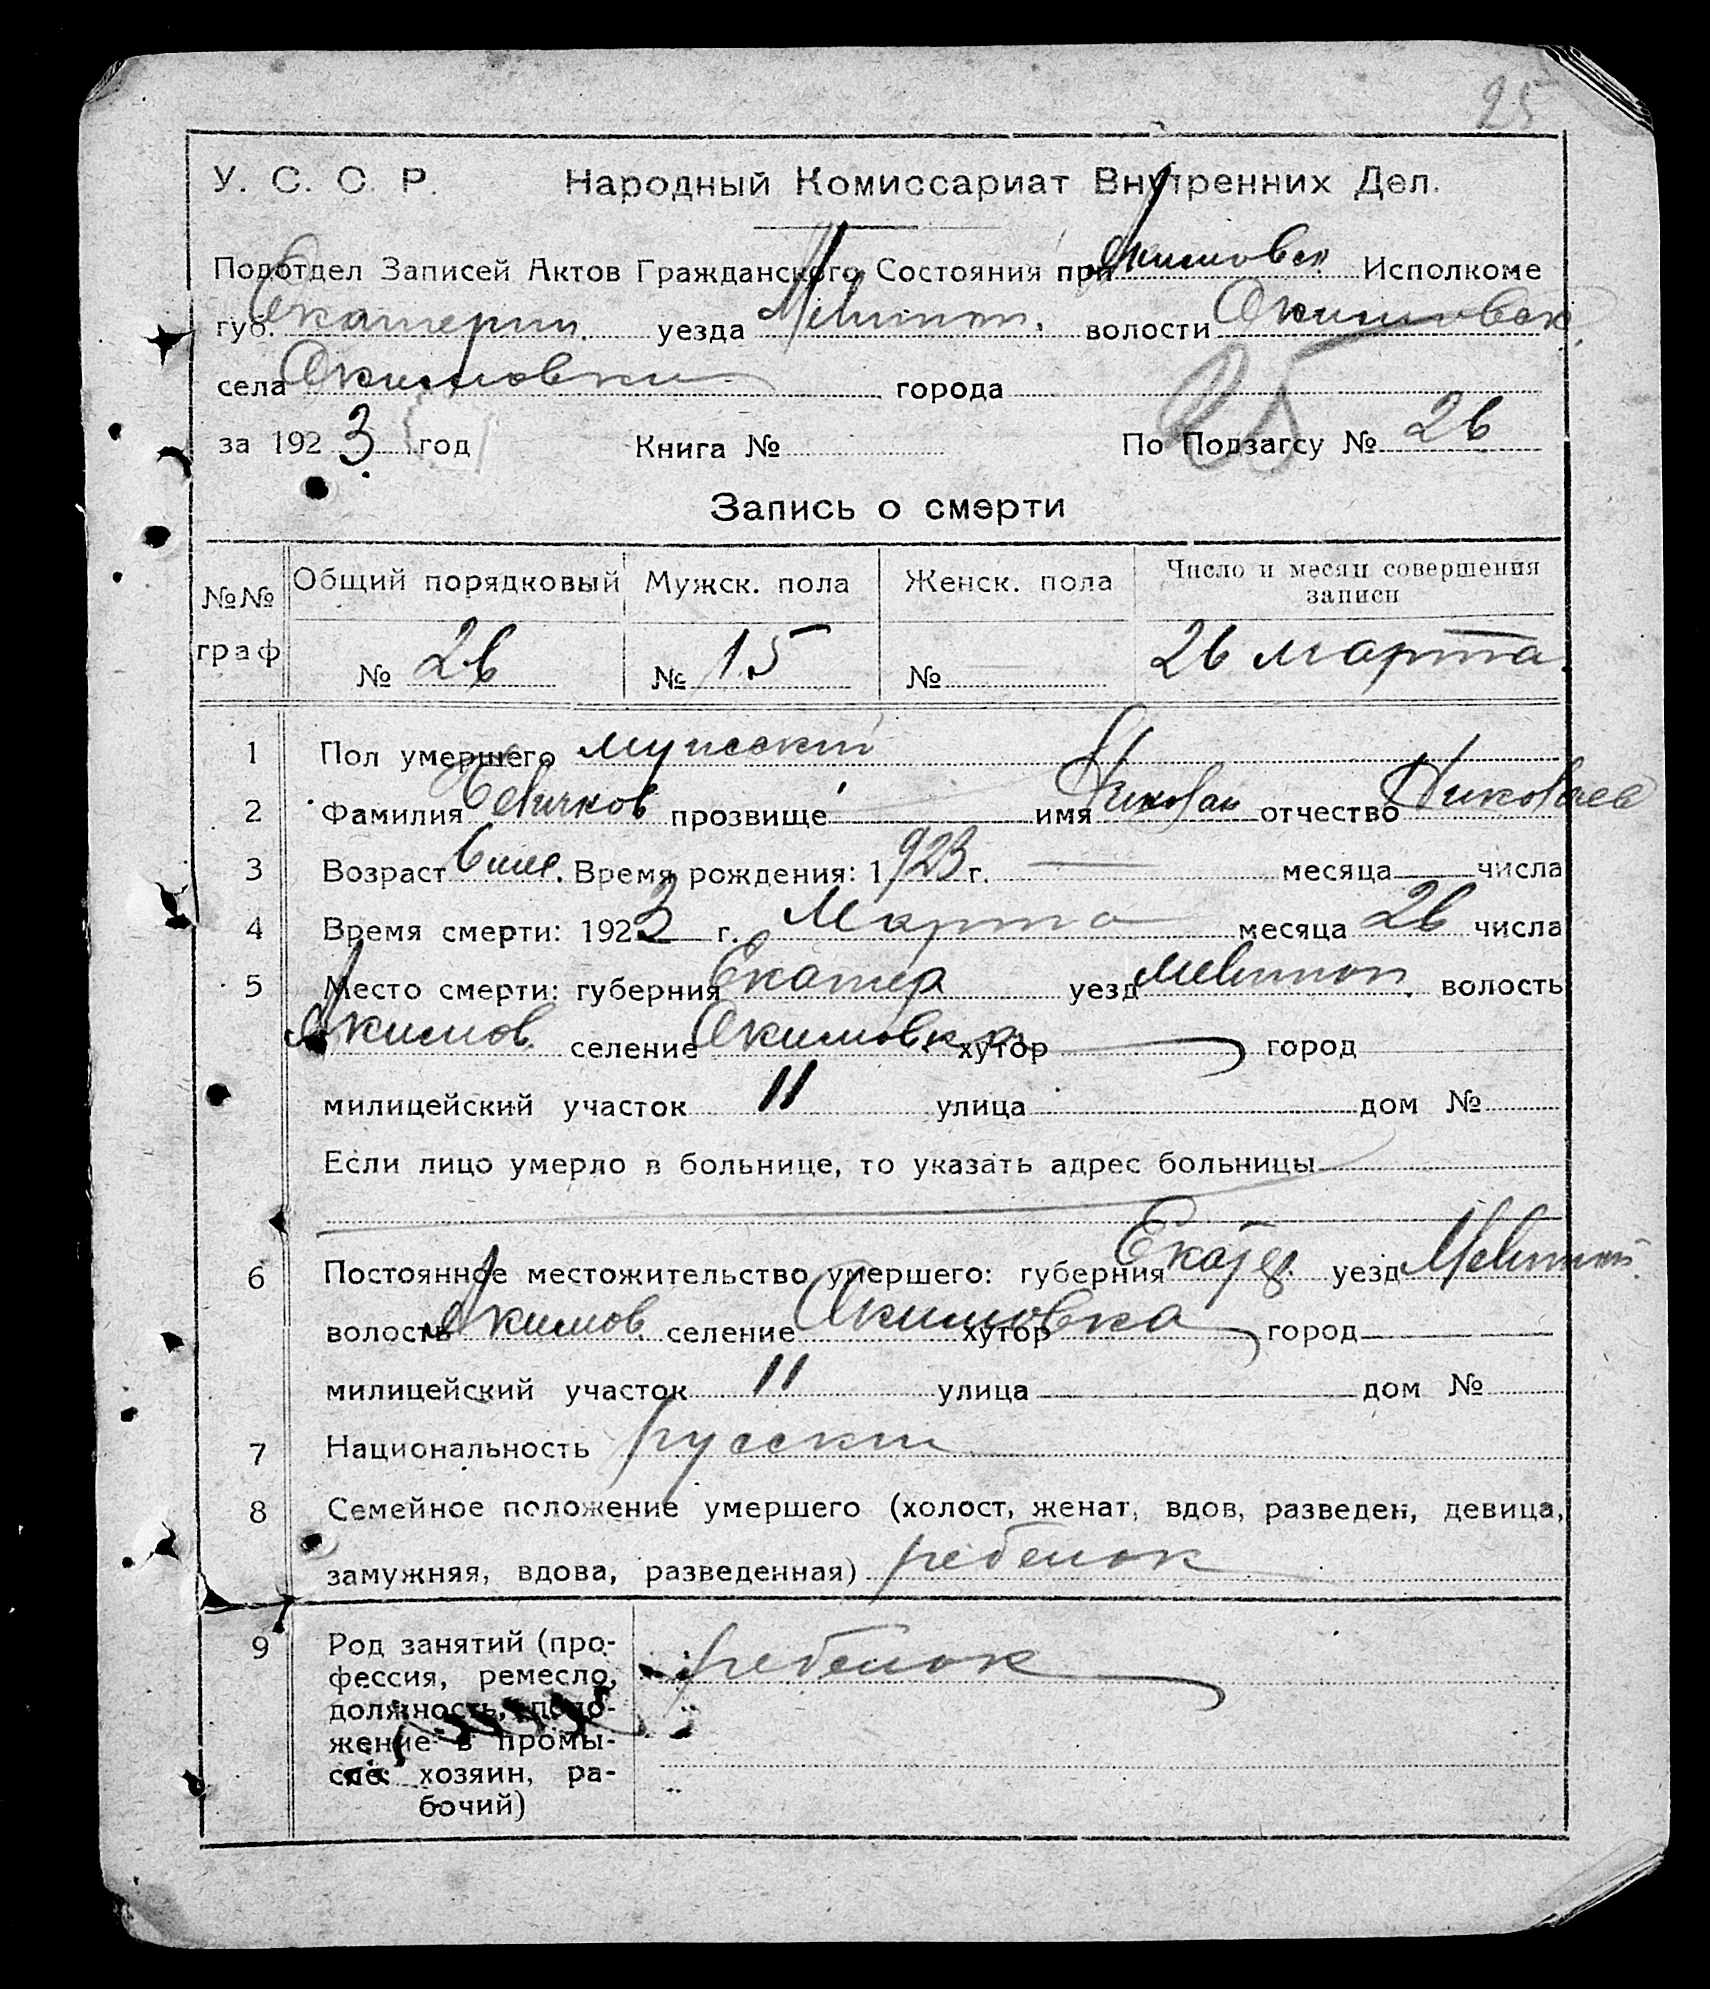 25
У. С. С. Р. Народный Комиссариат Внутренних Дел.
Подотдел Записей Актов Гражданского Состояния при Акимовск Исполкоме
губ. Екатерин. уезда Мелитоп. волости Акимовск
села Акимовки города
25
за 1923 год Книга № По Подзагсу № 26
Запись о смерти
№№ граф Общий порядковый Мужск. пола Женск. пола Число и месяц совершения записи
№ 26 № 15 № 26 марта.
1 Пол умершего мужской
2 Фамилия прозвище имя Николай отчество Николаев
3 Возраст Время рождения: 1923 г. месяца числа
4 Время смерти: 1923 г. Марта месяца 26 числа
5 Место смерти: губерния Екатер уезд Мелитоп. волость
Акимов. селение Акимовка хутор город
милицейский участок 11 улица дом №
Если лицо умерло в больнице, то указать адрес больницы
6 Постоянное местожительство умершего: губерния Екатер. уезд Мелитоп.
волость Акимов селение Акимовка хутор город
милицейский участок 11 улица дом №
7 Национальность русский
8 Семейное положение умершего (холост, женат, вдов, разведен, девица,
замужняя, вдова, разведенная) ребенок
9 Род занятий (про- ребенок
фессия, ремесло,
должность, поло-
жение в промы-
сле: хозяин, ра-
бочий)